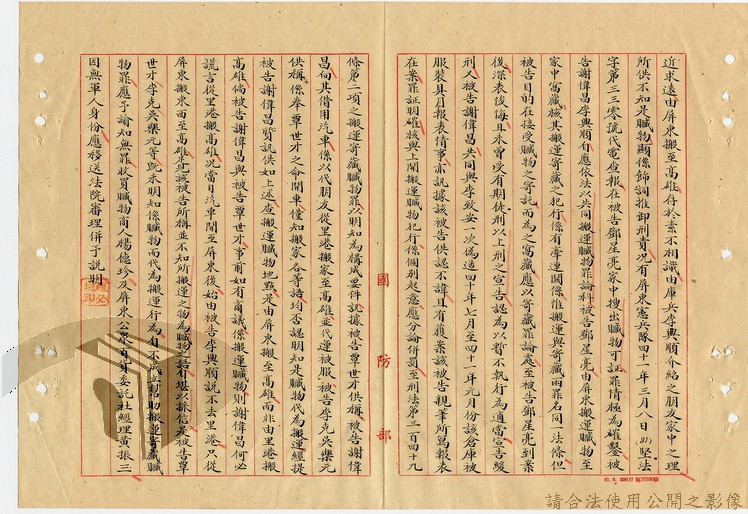 近求遠由屏東搬至高雄存於素不相識由庫兵李興順介紹之朋友家中之理
所供不知是贓物顯係飾詞推卸刑責況有屏東憲兵隊四十一年三月八日(41)堅法
字第三三零號代電查報在被告鄧星亮家中搜出贓物可証罪情極為確鑿被
告謝偉昌李興順自應依法以共同搬運贓物罪論科被告鄧星亮由屏東搬運贓物至
家中寄藏核其搬運寄藏之犯行係有牽連關係惟搬運與寄藏兩罪名同一法條但
被告目的在接受贓物之寄託而為之寄藏應以寄藏罪論處至被告鄧星亮到案
後深表後悔且未曾受有期徒刑以上刑之宣告認為以暫不執行為適當宣告緩
刑又被告謝偉昌共同與李致安一次偽造四十年七月至四十一年元月份該倉庫被
服裝具月報表情事亦訊據該被告供認不諱且有獲案該被告親筆所寫報表
在案罪証明確核與上開搬運贓物犯行係個別起意應分論併罰至刑法第三百四十九
條第二項之搬運寄藏贓物罪以明知為構成要件訊據被告覃世才供稱被告謝偉
昌向其借用汽車係以代朋友從里港搬家至高雄並代運被服被告李克吳樂元
供稱係奉覃世才之命開車僅知搬家各等語均否認明知是贓物代為搬運經提
被告謝偉昌質訊供如上述查搬運贓物地點是由屏東搬至高雄而非由里港搬
高雄倘被告謝偉昌與被告覃世才事前如有商議係搬運贓物則謝偉昌何必
謊言從里港搬高雄況當日汽車開至屏東後始由被告李興順說不去里港只從
屏東搬東西至高雄足徵被告所稱並不知所搬運之物為贓物之語有堪以採信是被告覃
世才李克吳樂元等既未明知係贓物而代為搬運行為自不成立幫助搬運寄藏贓
物罪應予諭知無罪收買贓物商人楊德珍及屏東公眾自身委託社經理黃振三
因無軍人身份應移送法院審理併予說明
國防部
請合法使用公開之影像